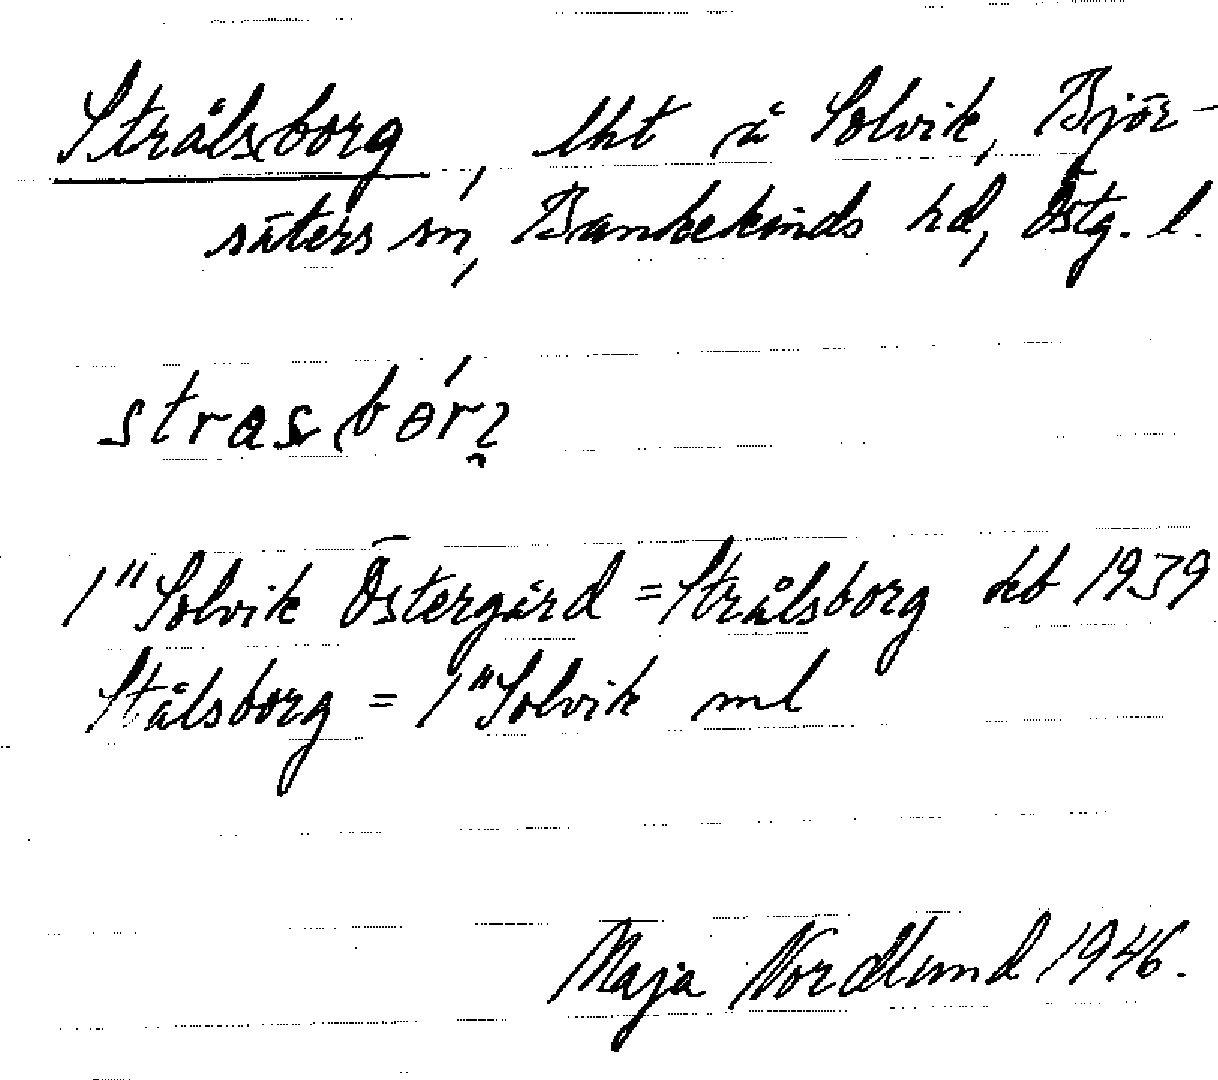 Strålsborg, lht å Solvik, Björ-
säters sn, Bankekinds hd, Östg. l.
1" Solvik Östergård = Strålsborg kb 1939
Stålsborg = 1" Solvik ml
Maja Nordlund 1946.